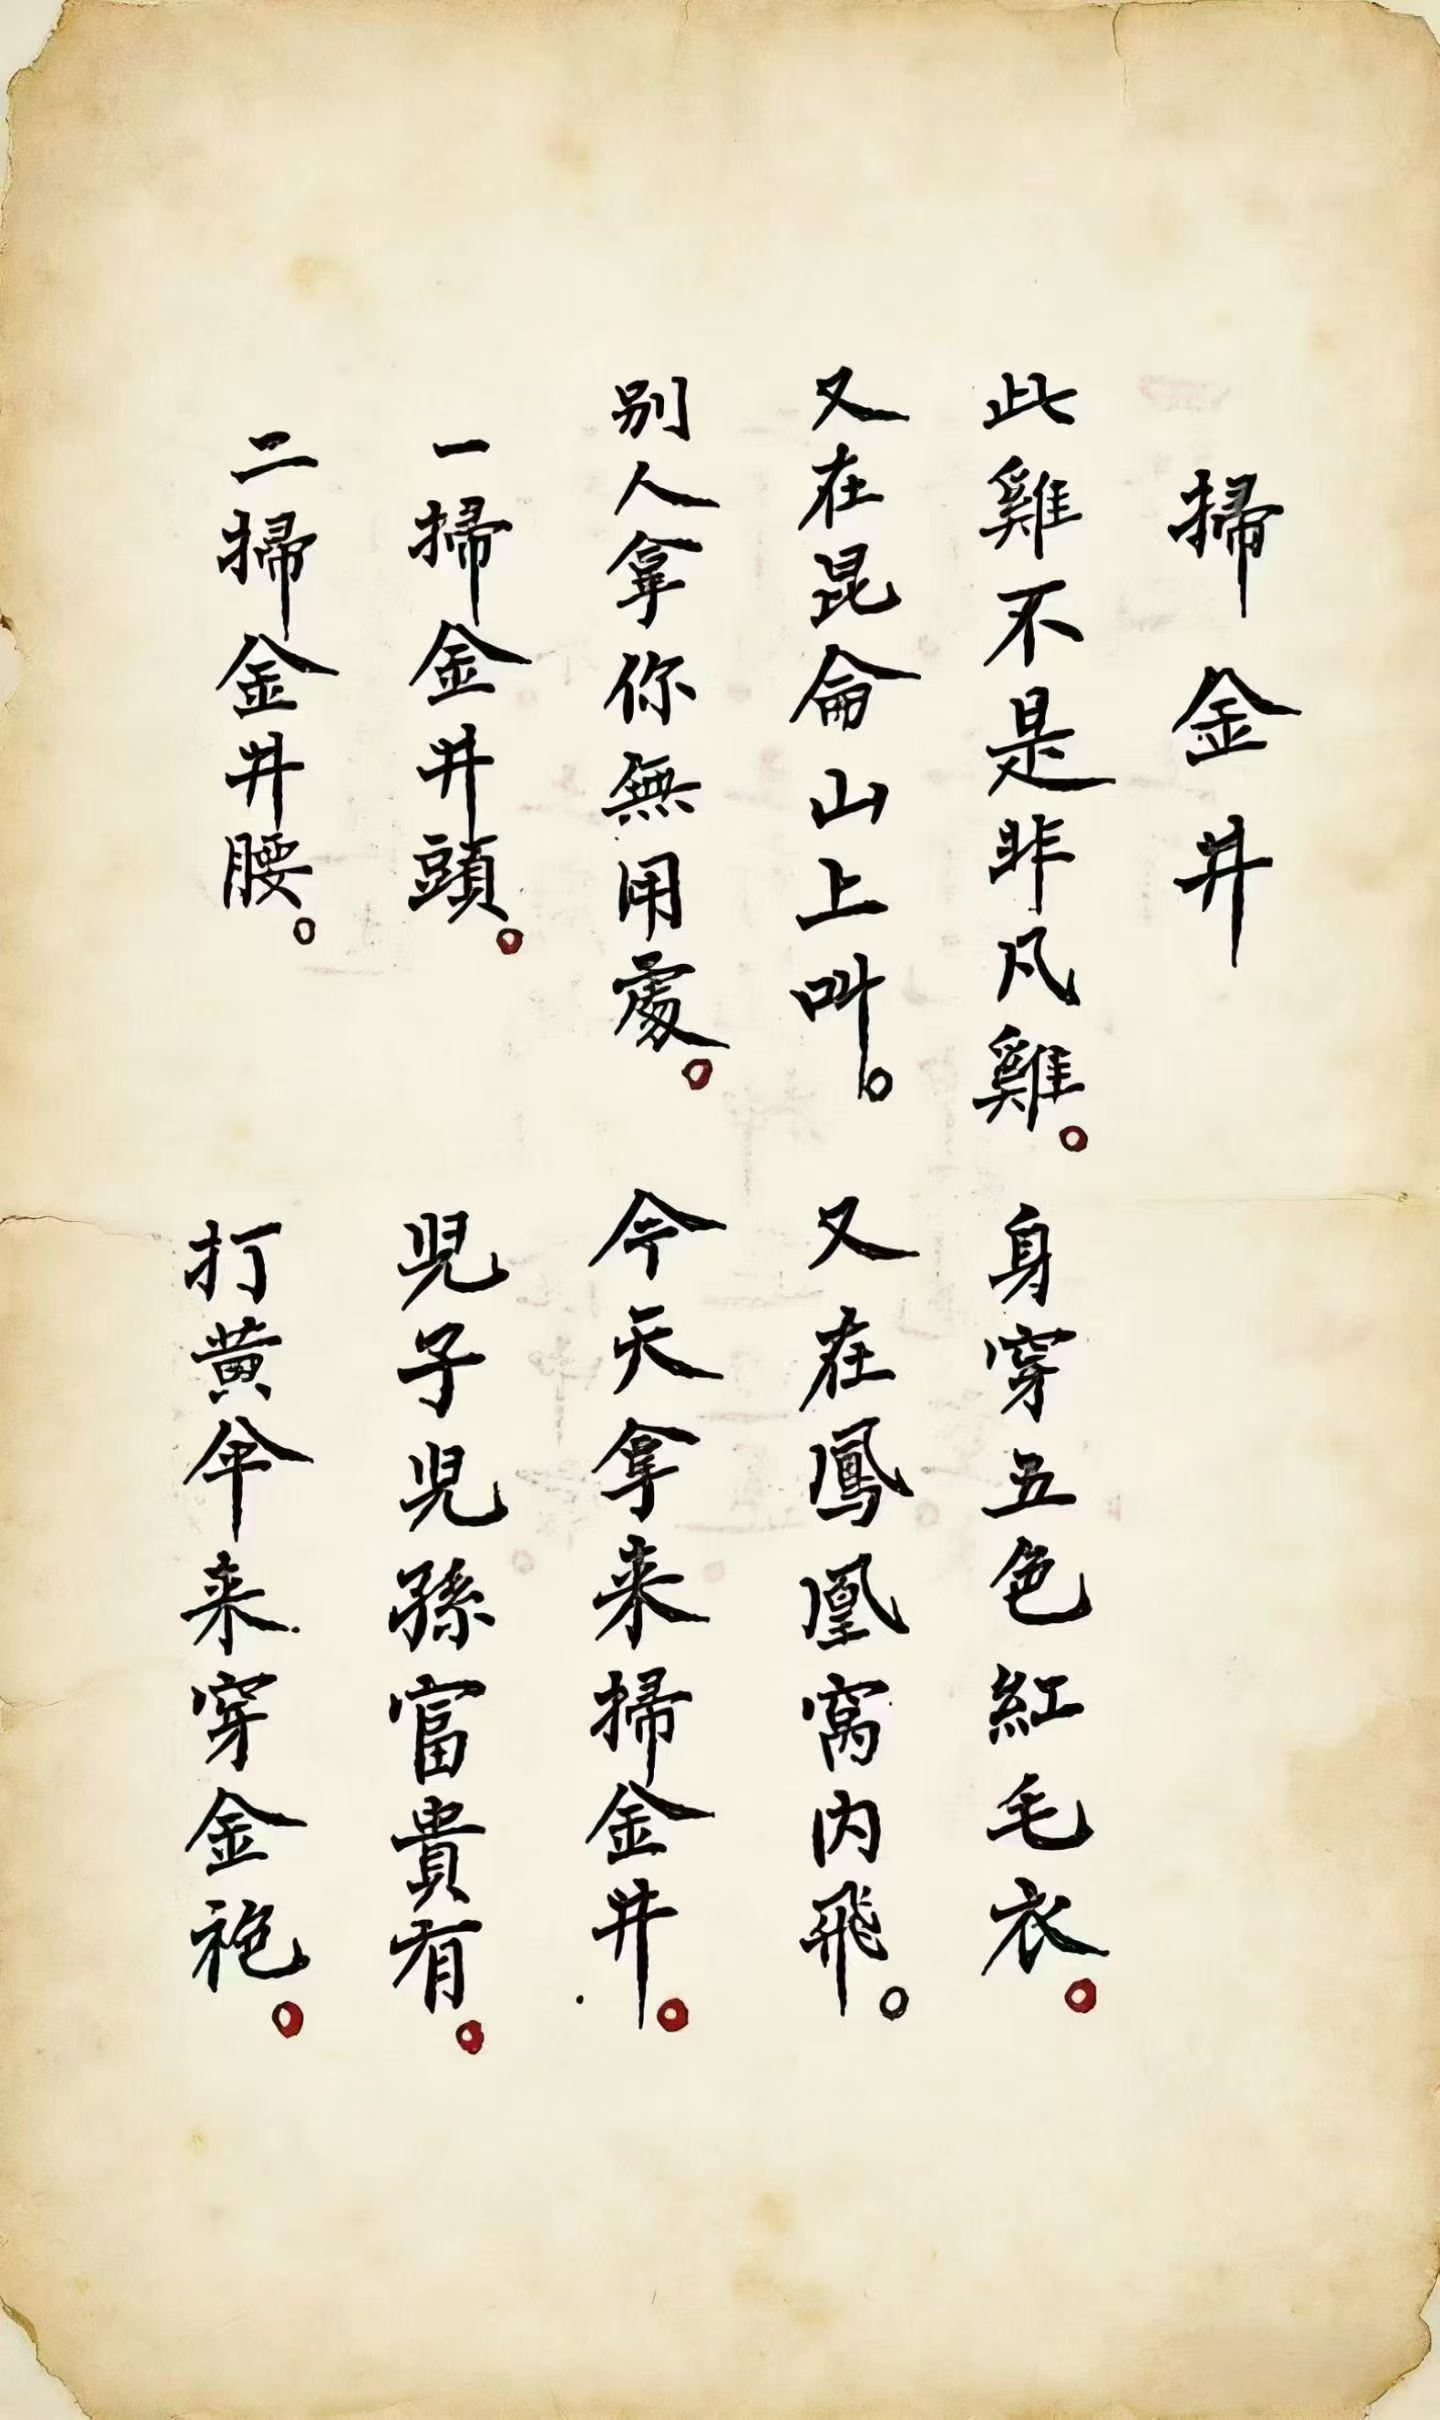 掃金井
此雞不是非凡雞。身穿五色紅毛衣。
又在昆侖山上叫。又在鳳凰窩内飛。
别人拿你無用處。今天拿来掃金井。
一掃金井頭。兒子兒孫富貴有。
二掃金井腰。打黄伞来穿金袍。